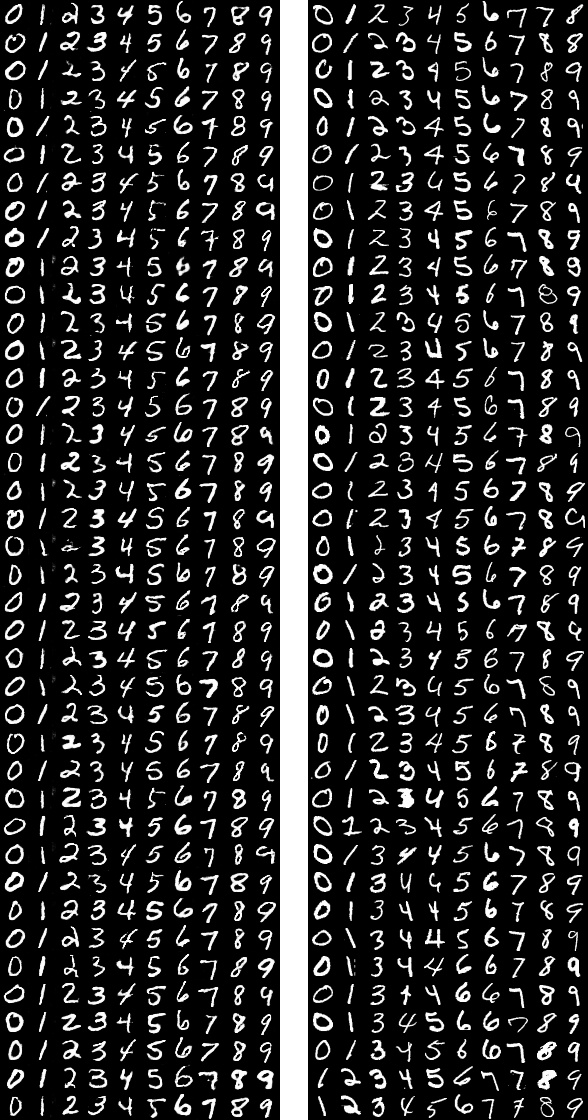 0 1 2 3 4 5 6 7 8 9
0 1 2 3 4 5 6 7 8 9
0 1 2 3 4 5 6 7 8 9
0 1 2 3 4 5 6 7 8 9
0 1 2 3 4 5 6 7 8 9
0 1 2 3 4 5 6 7 8 9
0 1 2 3 4 5 6 7 8 9
0 1 2 3 4 5 6 7 8 9
0 1 2 3 4 5 6 7 8 9
0 1 2 3 4 5 6 7 8 9
0 1 2 3 4 5 6 7 8 9
0 1 2 3 4 5 6 7 8 9
0 1 2 3 4 5 6 7 8 9
0 1 2 3 4 5 6 7 8 9
0 1 2 3 4 5 6 7 8 9
0 1 2 3 4 5 6 7 8 9
0 1 2 3 4 5 6 7 8 9
0 1 2 3 4 5 6 7 8 9
0 1 2 3 4 5 6 7 8 9
0 1 2 3 4 5 6 7 8 9
0 1 2 3 4 5 6 7 8 9
0 1 2 3 4 5 6 7 8 9
0 1 2 3 4 5 6 7 8 9
0 1 2 3 4 5 6 7 8 9
0 1 2 3 4 5 6 7 8 9
0 1 2 3 4 5 6 7 8 9
0 1 2 3 4 5 6 7 8 9
0 1 2 3 4 5 6 7 8 9
0 1 2 3 4 5 6 7 8 9
0 1 2 3 4 5 6 7 8 9
0 1 2 3 4 5 6 7 8 9
0 1 2 3 4 5 6 7 8 9
0 1 2 3 4 5 6 7 8 9
0 1 2 3 4 5 6 7 8 9
0 1 2 3 4 5 6 7 8 9
0 1 2 3 4 5 6 7 8 9
0 1 2 3 4 5 6 7 8 9
0 1 2 3 4 5 6 7 8 9
0 1 2 3 4 5 6 7 8 9
0 1 2 3 4 5 6 7 8 9
0 1 2 3 4 5 6 7 7 8
0 1 2 3 4 5 6 7 8 8
0 1 2 3 4 5 6 7 8 9
0 1 2 3 4 5 6 7 8 9
0 1 2 3 4 5 6 7 8 9
0 1 2 3 4 5 6 7 8 9
0 1 2 3 4 5 6 7 8 9
0 1 2 3 4 5 6 7 8 9
0 1 2 3 4 5 6 7 8 9
0 1 2 3 4 5 6 7 8 9
0 1 2 3 4 5 6 7 8 9
0 1 2 3 4 5 6 7 8 9
0 1 2 3 4 5 6 7 8 9
0 1 2 3 4 5 6 7 8 9
0 1 2 3 4 5 6 7 8 9
0 1 2 3 4 5 6 7 8 9
0 1 2 3 4 5 6 7 8 9
0 1 2 3 4 5 6 7 8 9
0 1 2 3 4 5 6 7 8 0
0 1 2 3 4 5 6 7 8 9
0 1 2 3 4 5 6 7 8 9
0 1 2 3 4 5 6 7 8 9
0 1 2 3 4 5 6 7 8 0
0 1 2 3 4 5 6 7 8 9
0 1 2 3 4 5 6 7 8 9
0 1 2 3 4 5 6 7 8 9
0 1 2 3 4 5 6 7 8 9
0 1 2 3 4 5 6 7 8 9
0 1 2 3 4 5 6 7 8 9
0 1 2 3 4 5 6 7 8 9
0 1 3 4 4 5 6 7 8 9
0 1 3 4 4 5 6 7 8 9
0 1 3 4 4 5 6 7 8 9
0 1 3 4 4 5 6 7 8 9
0 1 3 4 4 6 6 7 8 9
0 1 3 4 4 6 6 7 8 9
0 1 3 4 5 6 6 7 8 9
0 1 3 4 5 6 6 7 8 9
1 2 3 4 5 6 7 7 8 9
1 2 3 4 5 6 7 7 8 8